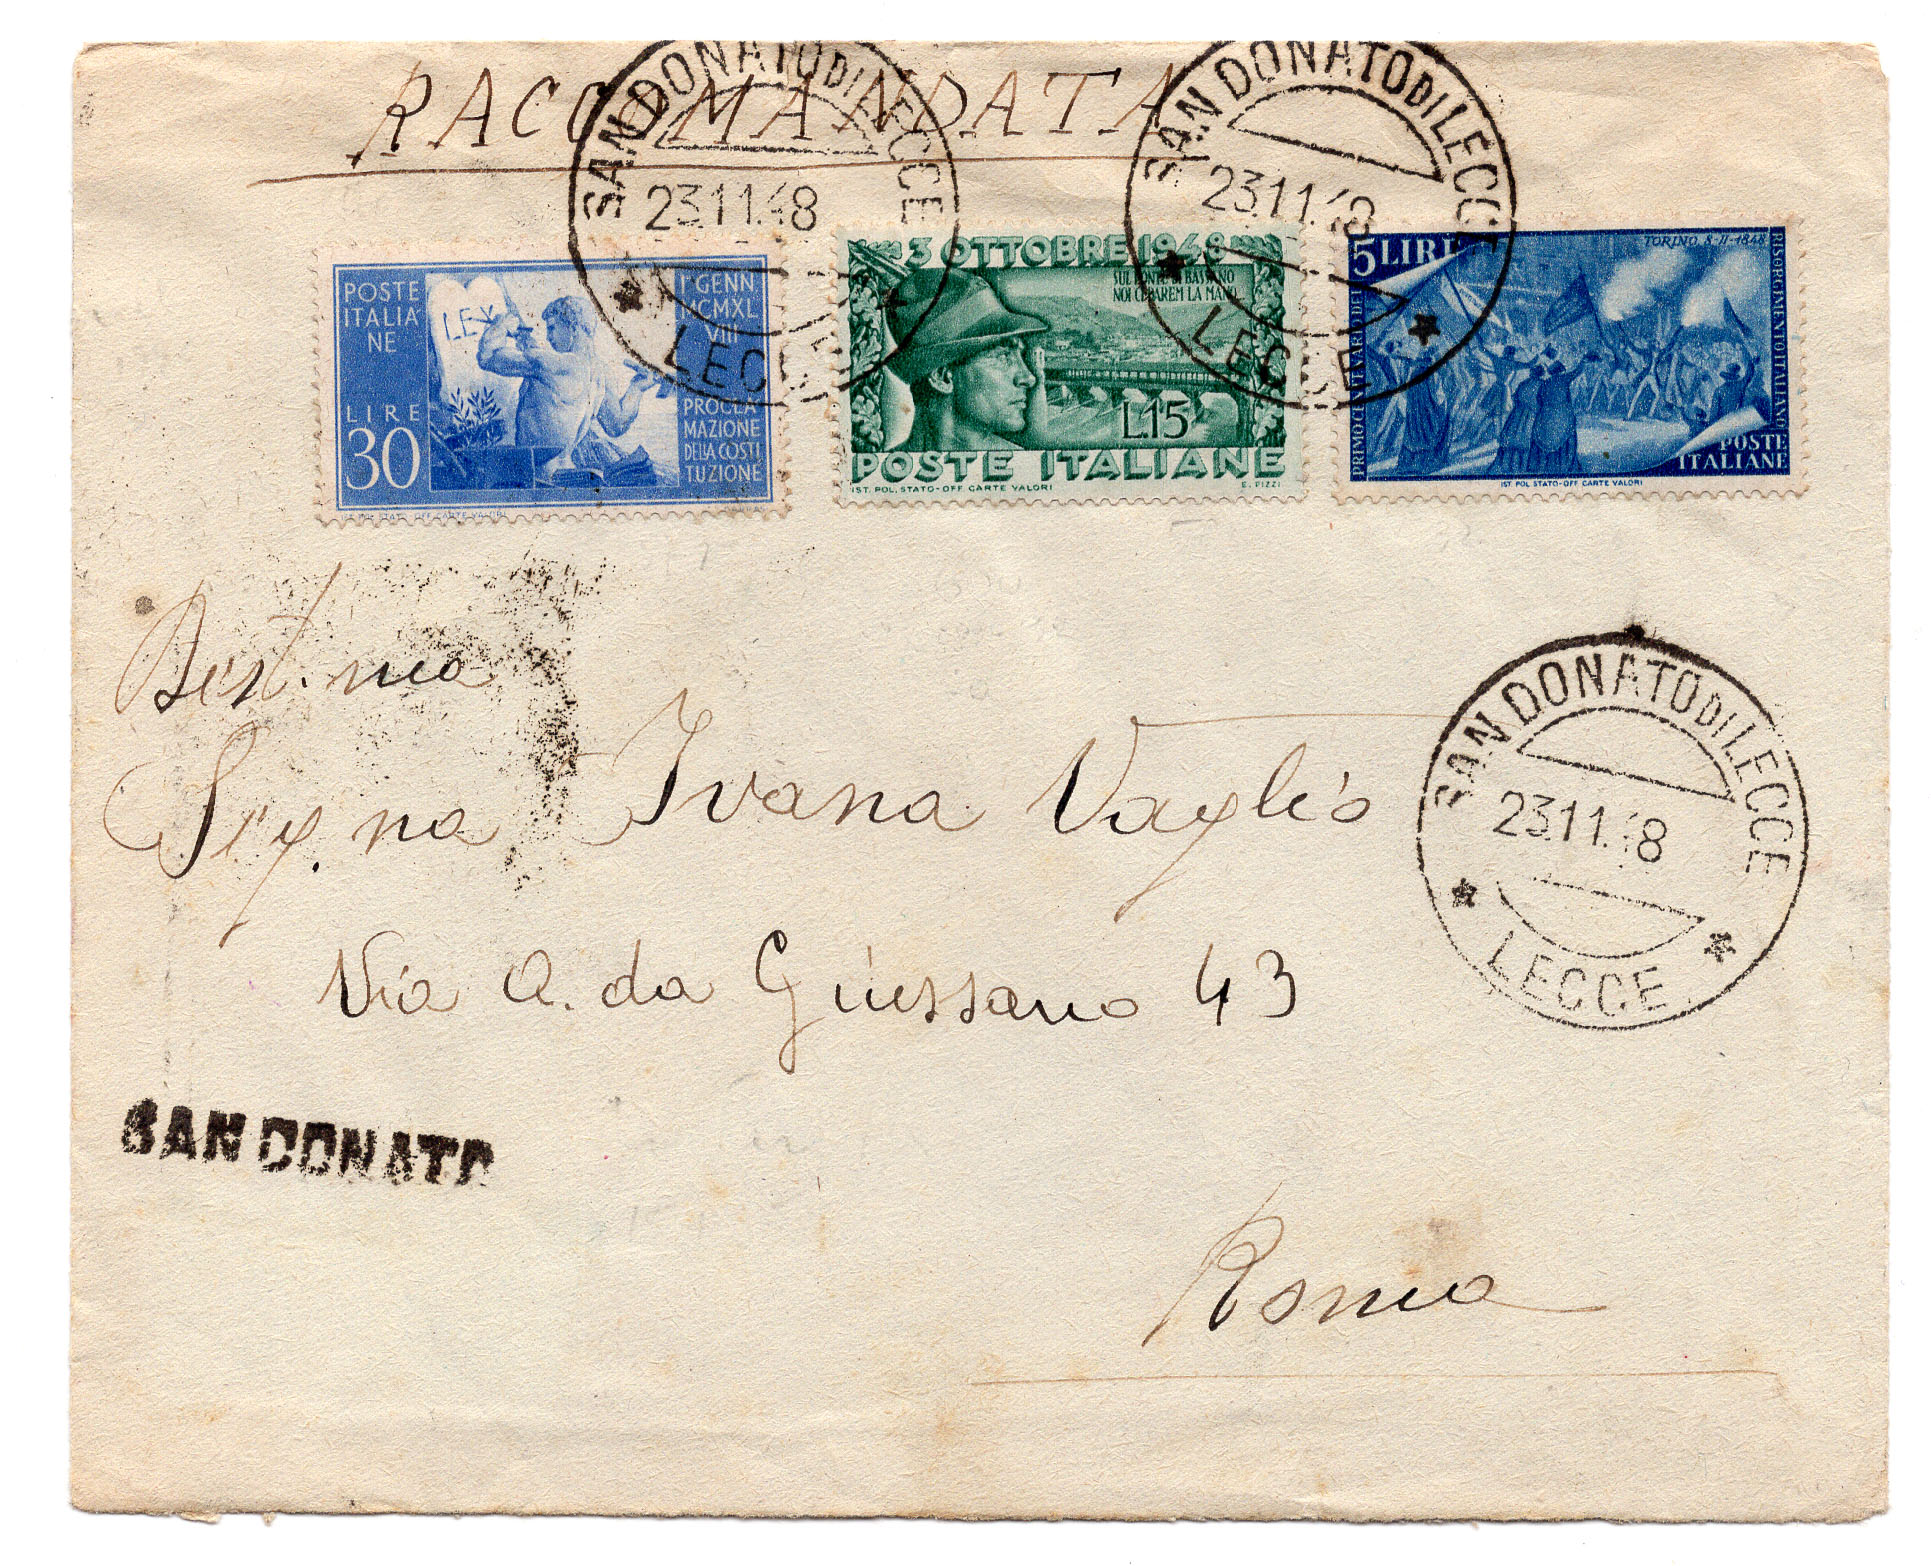 RACCOMANDATA
SAN DONATO DI LECCE
23.11.48
LECCE
SAN DONATO DI LECCE
23.11.48
LECCE
POSTE
ITALIA
NE
LEX
1° GENN
MCMXL
VIII
LIRE
30
PROCLA
MAZIONE
DELLA COSTI
TUZIONE
3 OTTOBRE 1948
SUL PONTE DI BASSANO
NOI CI DAREM LA MANO
L.15
POSTE ITALIANE
IST. POL. STATO-OFF. CARTE VALORI
E. PIZZI
5 LIRE
TORINO 8-II-1848
PRIMO CENTENARIO DEL
RISORGIMENTO ITALIANO
POSTE
ITALIANE
IST. POL. STATO-OFF. CARTE VALORI
Gent.ma
Sig.na Ivana Vaglio
Via A. da Giussano 43
SAN DONATO DI LECCE
23.11.48
LECCE
SAN DONATO
Roma